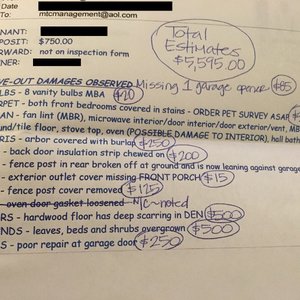 Date
To: mtcmanagement@aol.com
Total Estimates $5,595.00
NANT:
POSIT: $750.00
RWARD: not on inspection form
NER:
VE-OUT DAMAGES OBSERVED Missing 1 garage opener $85
LBS - 8 vanity bulbs MBA $20
RPET - both front bedrooms covered in stains - ORDER PET SURVEY ASAP
AN - fan lint (MBR), microwave interior/door interior/door exterior/vent, MB
und/tile floor, stove top, oven (POSSIBLE DAMAGE TO INTERIOR), hall bath
RIS - arbor covered with burlap $250
- back door insulation strip chewed on $200
- fence post in rear broken off at ground and is now leaning against garage
- exterior outlet cover missing FRONT PORCH $15
- fence post cover removed $125
- oven door gasket loosened TC-noted
RS - hardwood floor has deep scarring in DEN $500
NDS - leaves, beds and shrubs overgrown $500
S - poor repair at garage door $250